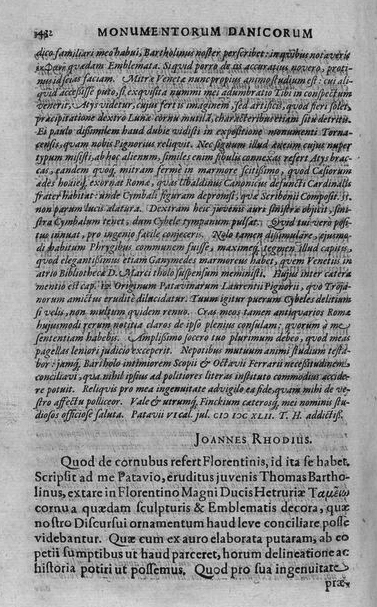 MONUMENTORUM DANICORUM
dico familiari meo habui, Bartholinus noster perscribet: in quibus notaveris
quædam Emblemata. Siquid porro de iis accuratius novero, proti-
nus id scias faciam. Mitræ Venetæ nunc propius animo studium est: cui ali-
quid accessisse puto, si exquisita nummi mei adumbratio Tibi in conspectum
venerit. Atys videtur, cujus fert is imaginem, sed artificis, quod fieri solet,
præcipitatione dextro Lunæ cornu mutilâ, characteribus etiam situ detritis.
Ei paulo dissimilem haud dubie vidisti in expositione monumenti Torna-
censis, quam nobis Pignorius reliquit. Nec signum illud æneum cujus nuper
typum misisti, ab hoc alienum, similes enim fibulis connexas refert Atys brac-
cas, eandem quoq, mitram ferme in marmore scitissimo, quod Cæsiorum
ædes hodieq, exornat Romæ, quas Ubaldinus Canonicus defuncti Cardinalis
frater habitat: unde Cymbali figuram depronsit, quæ Scribonii Composit. ii.
non parum lucis allatura. Dextram heic juvenis auræ sinistræ objicit, sini-
stra Cymbalum tenet, dum Cybele tympanum pulsat. Quid tui vero posi-
tus innuat, pro ingenio facile conjeceris. Nolo tamen dissimulare, quinmo-
di habitum Phrygibus communem fuisse, maximeq, tegmen illud capitis,
quod elegantissimus etiam Ganymedes marmoreus habet, quem Venetiis in
atrio Bibliothecæ D. Marci tholo suspensum meministi. Ejus inter cætera
mentio est cap. ix Originum Patavinarum Laurentii Pignorii, quo Troja-
norum amictus erudite dilucidatur. Tuum igitur puerum Cybeles delitium
si velis, non multum quidem renuo. Cras meos tamen antiquarios Romæ
hujusmodi rerum notitia claros de ipso plenius consulam: quorum a me
sententiam habebis. Amplissimo socero tuo plurimum debeo, quod meas
pagellas leniori judicio exceperit. Nepotibus mutuum animi studium testa-
bor: jamq, Bartholo intimiorem Scopii & Octavii Ferrarii necessitudinem
conciliavi, qua nihil ipsius ad politiores literas instituto commodius accide-
re potuit. Reliqua pro mea ingenuitate advigilo ea fide, quam mihi de ve-
stro affectu polliceor. Vale & utrumq, Finckium cæterosq, mei nominis stu-
diosos officiose saluta. Patavii VI cal. jul. CIƆ IƆC XLII. T. H. addictiss.
JOANNES RHODIUS.
Quod de cornubus refert Florentinis, id ita se habet.
Scripsit ad me Patavio, eruditus juvenis Thomas Bartho-
linus, extare in Florentino Magni Ducis Hetruriæ Ταμείῳ
cornua quædam sculpturis & Emblematis decora, quæ
nostro Discursui ornamentum haud leve conciliare posse
videbantur. Quæ cum ex auro elaborata putaram, ab eo
petii sumptibus ut haud parceret, horum delineatione ac
historia potiri ut possemus. Quod pro sua ingenuitate
præ-